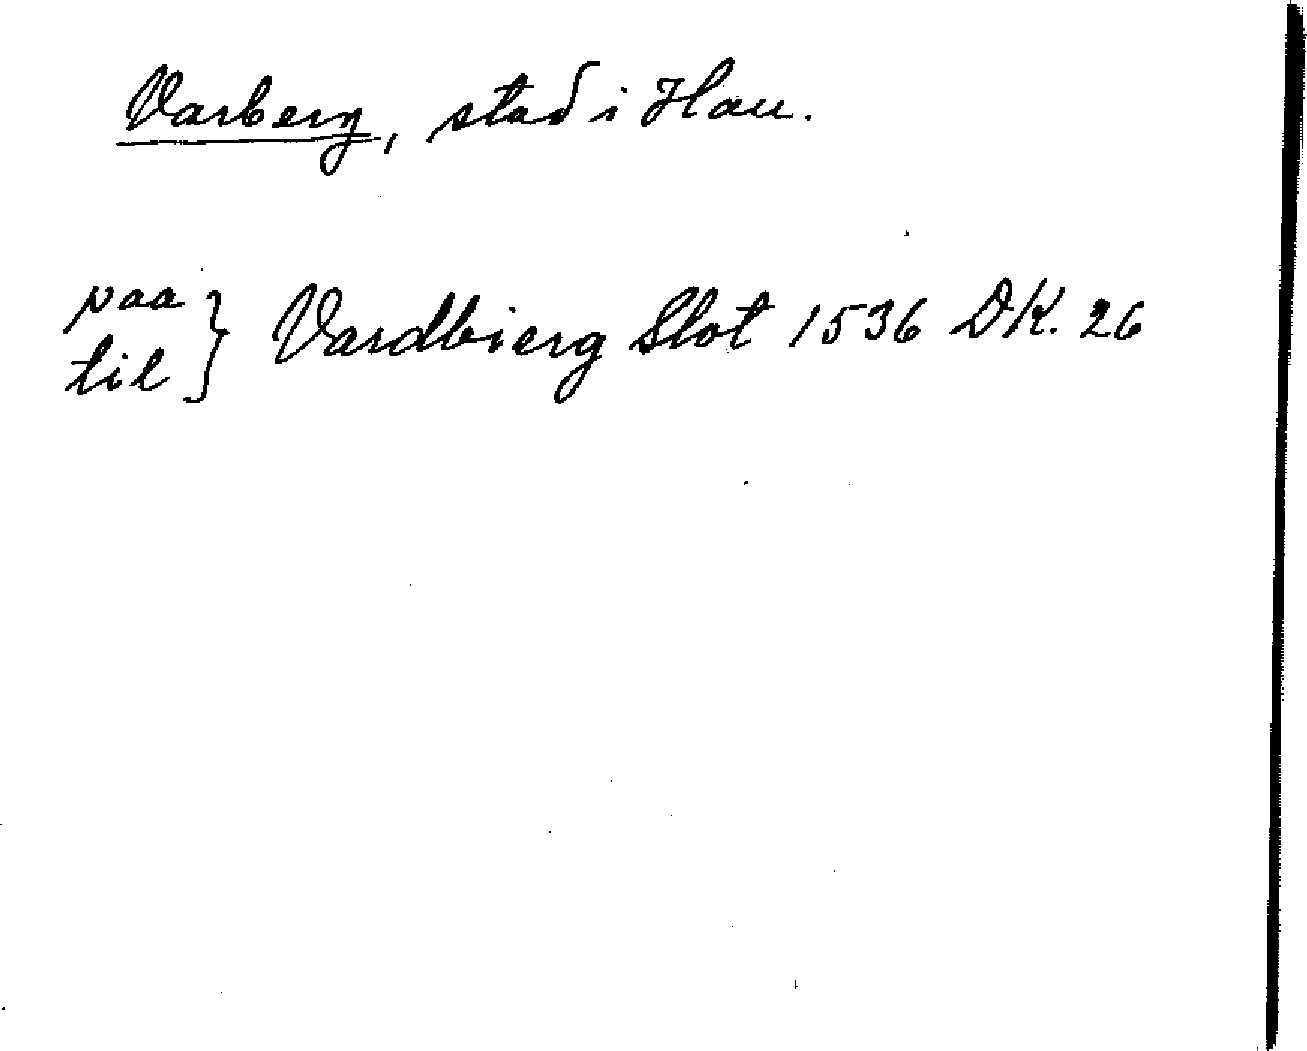 Varberg, stad i Hall.
paa
til } Vardbierg Slot 1536 DK. 26